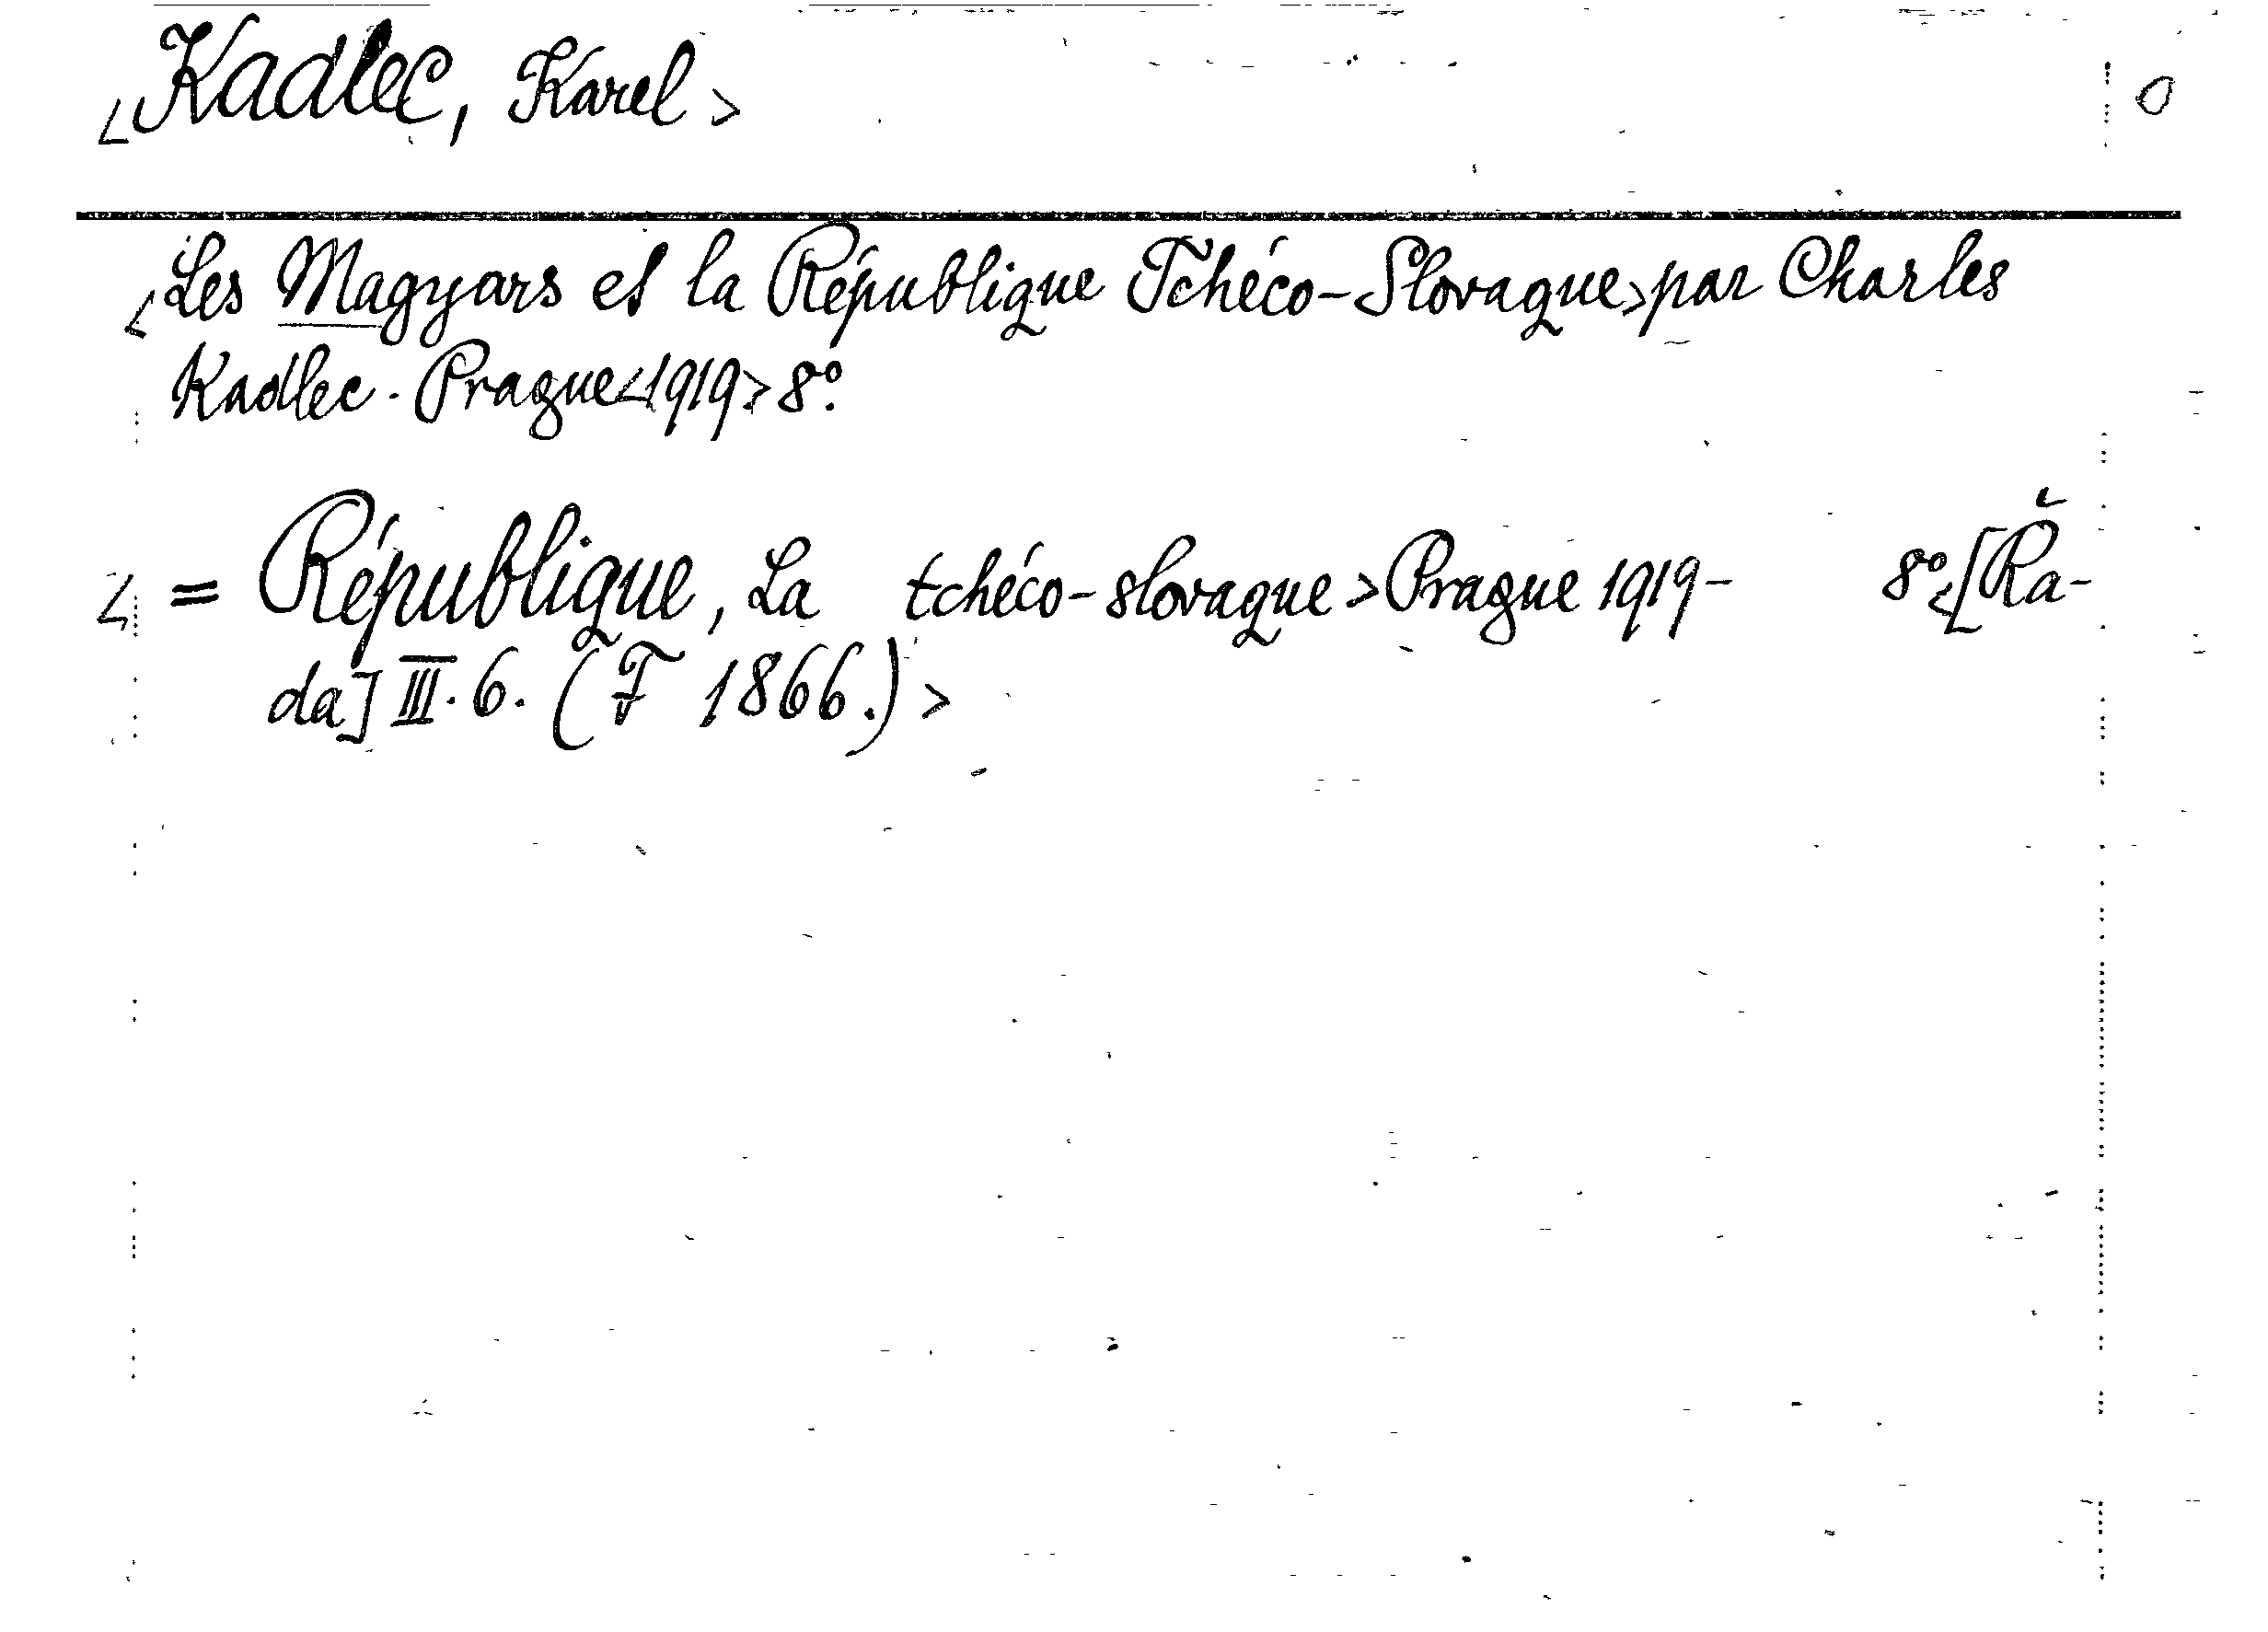 <Kadlec, Karel> 0
<Les Magyars et la République Tchéco-Slovaque> par Charles
Kadlec. Prague <1919> 8º.
< = République, La tchéco-slovaque > Prague 1919- 8º. <[Řa-
da] III. 6. (F 1866.) >